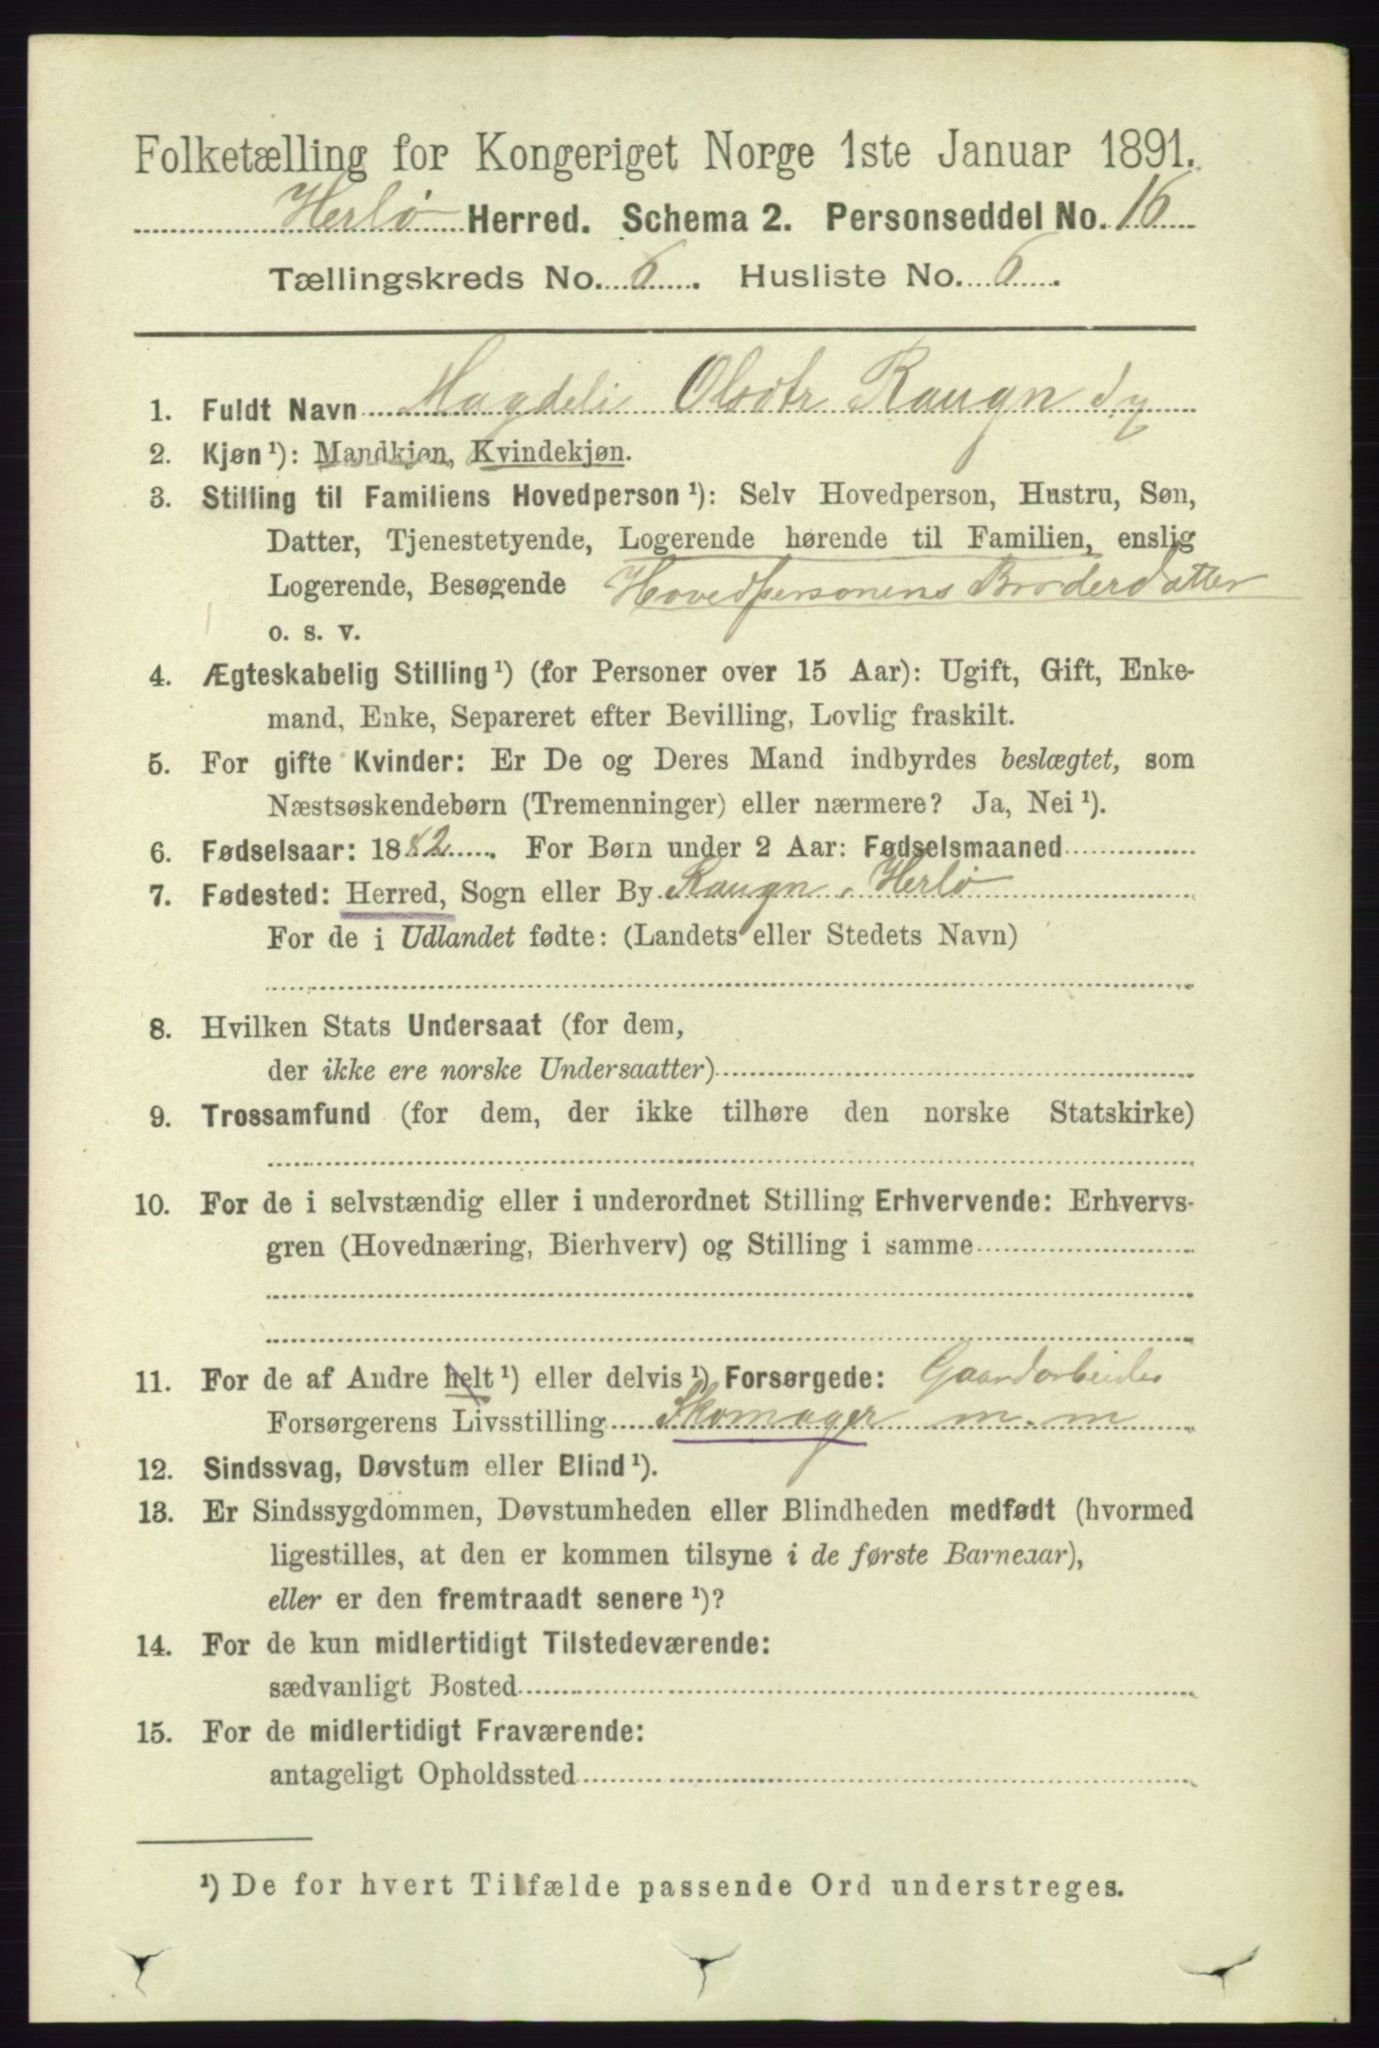 Folketælling for Kongeriget Norge 1ste Januar 1891.
Herlø Herred. Schema 2. Personseddel No. 16
Tællingskreds No. 6. Husliste No. 6.
1. Fuldt Navn Magdeli Olsdtr Raugn
2. Kjøn ¹): Mandkjøn, Kvindekjøn.
3. Stilling til Familiens Hovedperson ¹): Selv Hovedperson, Hustru, Søn,
Datter, Tjenestetyende, Logerende hørende til Familien, enslig
Logerende, Besøgende Hovedpersonens Broderdatter
o. s. v.
4. Ægteskabelig Stilling ¹) (for Personer over 15 Aar): Ugift, Gift, Enke-
mand, Enke, Separeret efter Bevilling, Lovlig fraskilt.
5. For gifte Kvinder: Er De og Deres Mand indbyrdes beslægtet, som
Næstsøskendebørn (Tremenninger) eller nærmere? Ja, Nei ¹).
6. Fødselsaar: 1882. For Børn under 2 Aar: Fødselsmaaned
7. Fødested: Herred, Sogn eller By Raugn, Herlø
For de i Udlandet fødte: (Landets eller Stedets Navn)
8. Hvilken Stats Undersaat (for dem,
der ikke ere norske Undersaatter)
9. Trossamfund (for dem, der ikke tilhøre den norske Statskirke)
10. For de i selvstændig eller i underordnet Stilling Erhvervende: Erhvervs-
gren (Hovednæring, Bierhverv) og Stilling i samme
11. For de af Andre helt ¹) eller delvis ¹) Forsørgede: Gaardarbeider
Forsørgerens Livsstilling Skomager m. m
12. Sindssvag, Døvstum eller Blind ¹).
13. Er Sindssygdommen, Døvstumheden eller Blindheden medfødt (hvormed
ligestilles, at den er kommen tilsyne i de første Barneaar),
eller er den fremtraadt senere ¹)?
14. For de kun midlertidigt Tilstedeværende:
sædvanligt Bosted
15. For de midlertidigt Fraværende:
antageligt Opholdssted
¹) De for hvert Tilfælde passende Ord understreges.